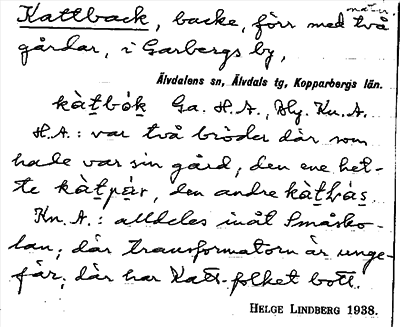 natur.
Kattback, backe, förr med två
gårdar, i Garbergs by,
Älvdalens sn, Älvdals tg, Kopparbergs län.
kàt̠bók̠ Ga. H.A., Kn. A.
H.A.: var två bröder där som
hade var sin gård, den ene het-
te kàt̠pär, den andre kàt̠làs.
Kn. A.: alldeles inåt Småsko-
lan; där transformatorn är unge-
fär; där har Katt-folket bott.
HELGE LINDBERG 1938.